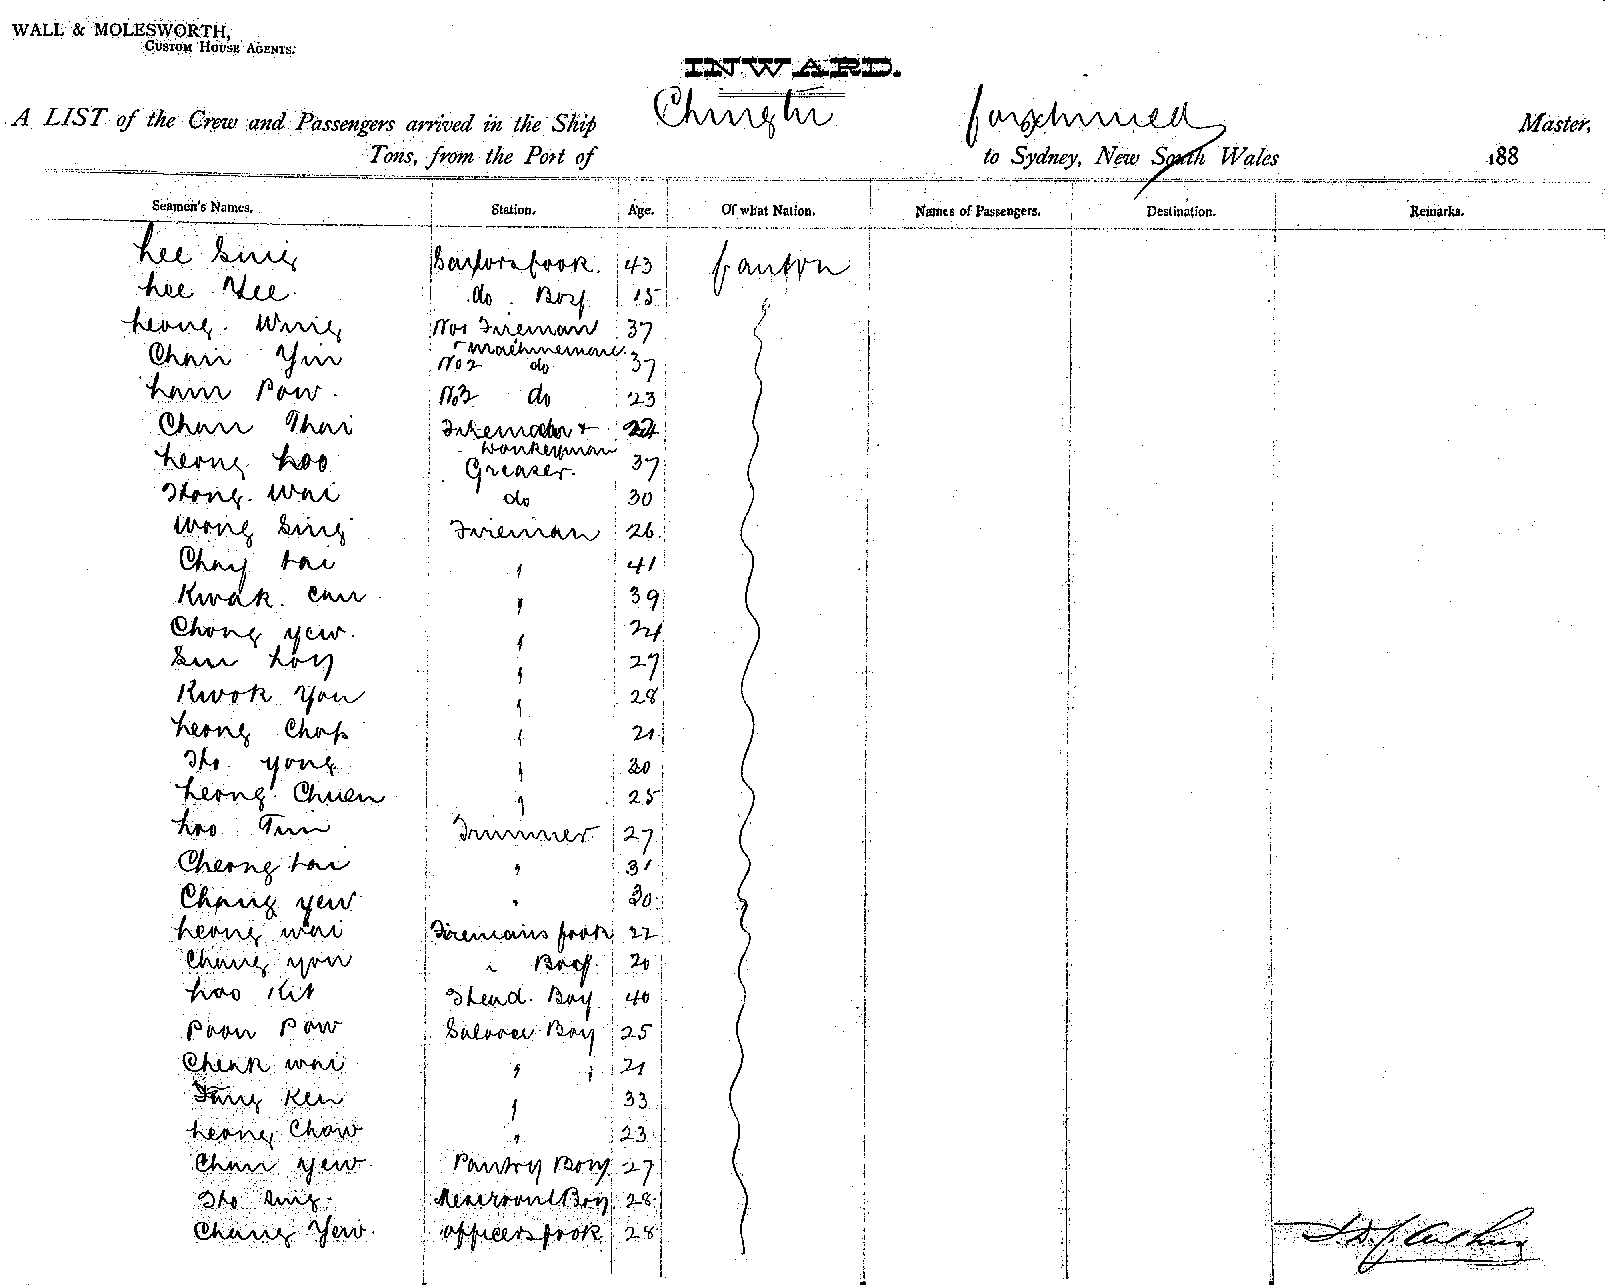 WALL & MOLESWORTH,
CUSTOM HOUSE AGENTS.
INWARD.
A LIST of the Crew and Passengers arrived in the Ship Chingtu Continued Master,
Tons, from the Port of to Sydney, New South Wales 188
Seamen's Names. Station. Age. Of what Nation. Names of Passengers. Destination. Remarks.
Lee Sing Sailors Cook. 43 Canton
Lee Yee do. Boy 15
Leong Wing No1 Fireman 37
Chan Yin No2 do 37
& machineman
Lam Pow. No3 do 23
Chan Thai Fireman &
Donkeyman
Leong Loo Greaser. 37
Hong Wai do 30
Wong Sing Fireman 26
Chay Lai " 41
Kwok Can " 39
Chong yew. " 24
Sin Loy " 27
Kwok You " 28
Leong Chop " 21
Ho yong " 30
Leong Chuen " 25
Loo Tim Trimmer 27
Cheong Lai " 31
Chang yew " 30
Leong wai Firemans Cook 22
Chang you " Boy 20
Loo Kit Head. Boy 40
Poon Pow Saloon Boy 25
Cheak wai " " 21
Fang Ken " 33
Leong Chow " 23
Chan yew Pantry Boy 27
Ho Sing Messroom Boy 28
Chang Yew. officers Cook 28